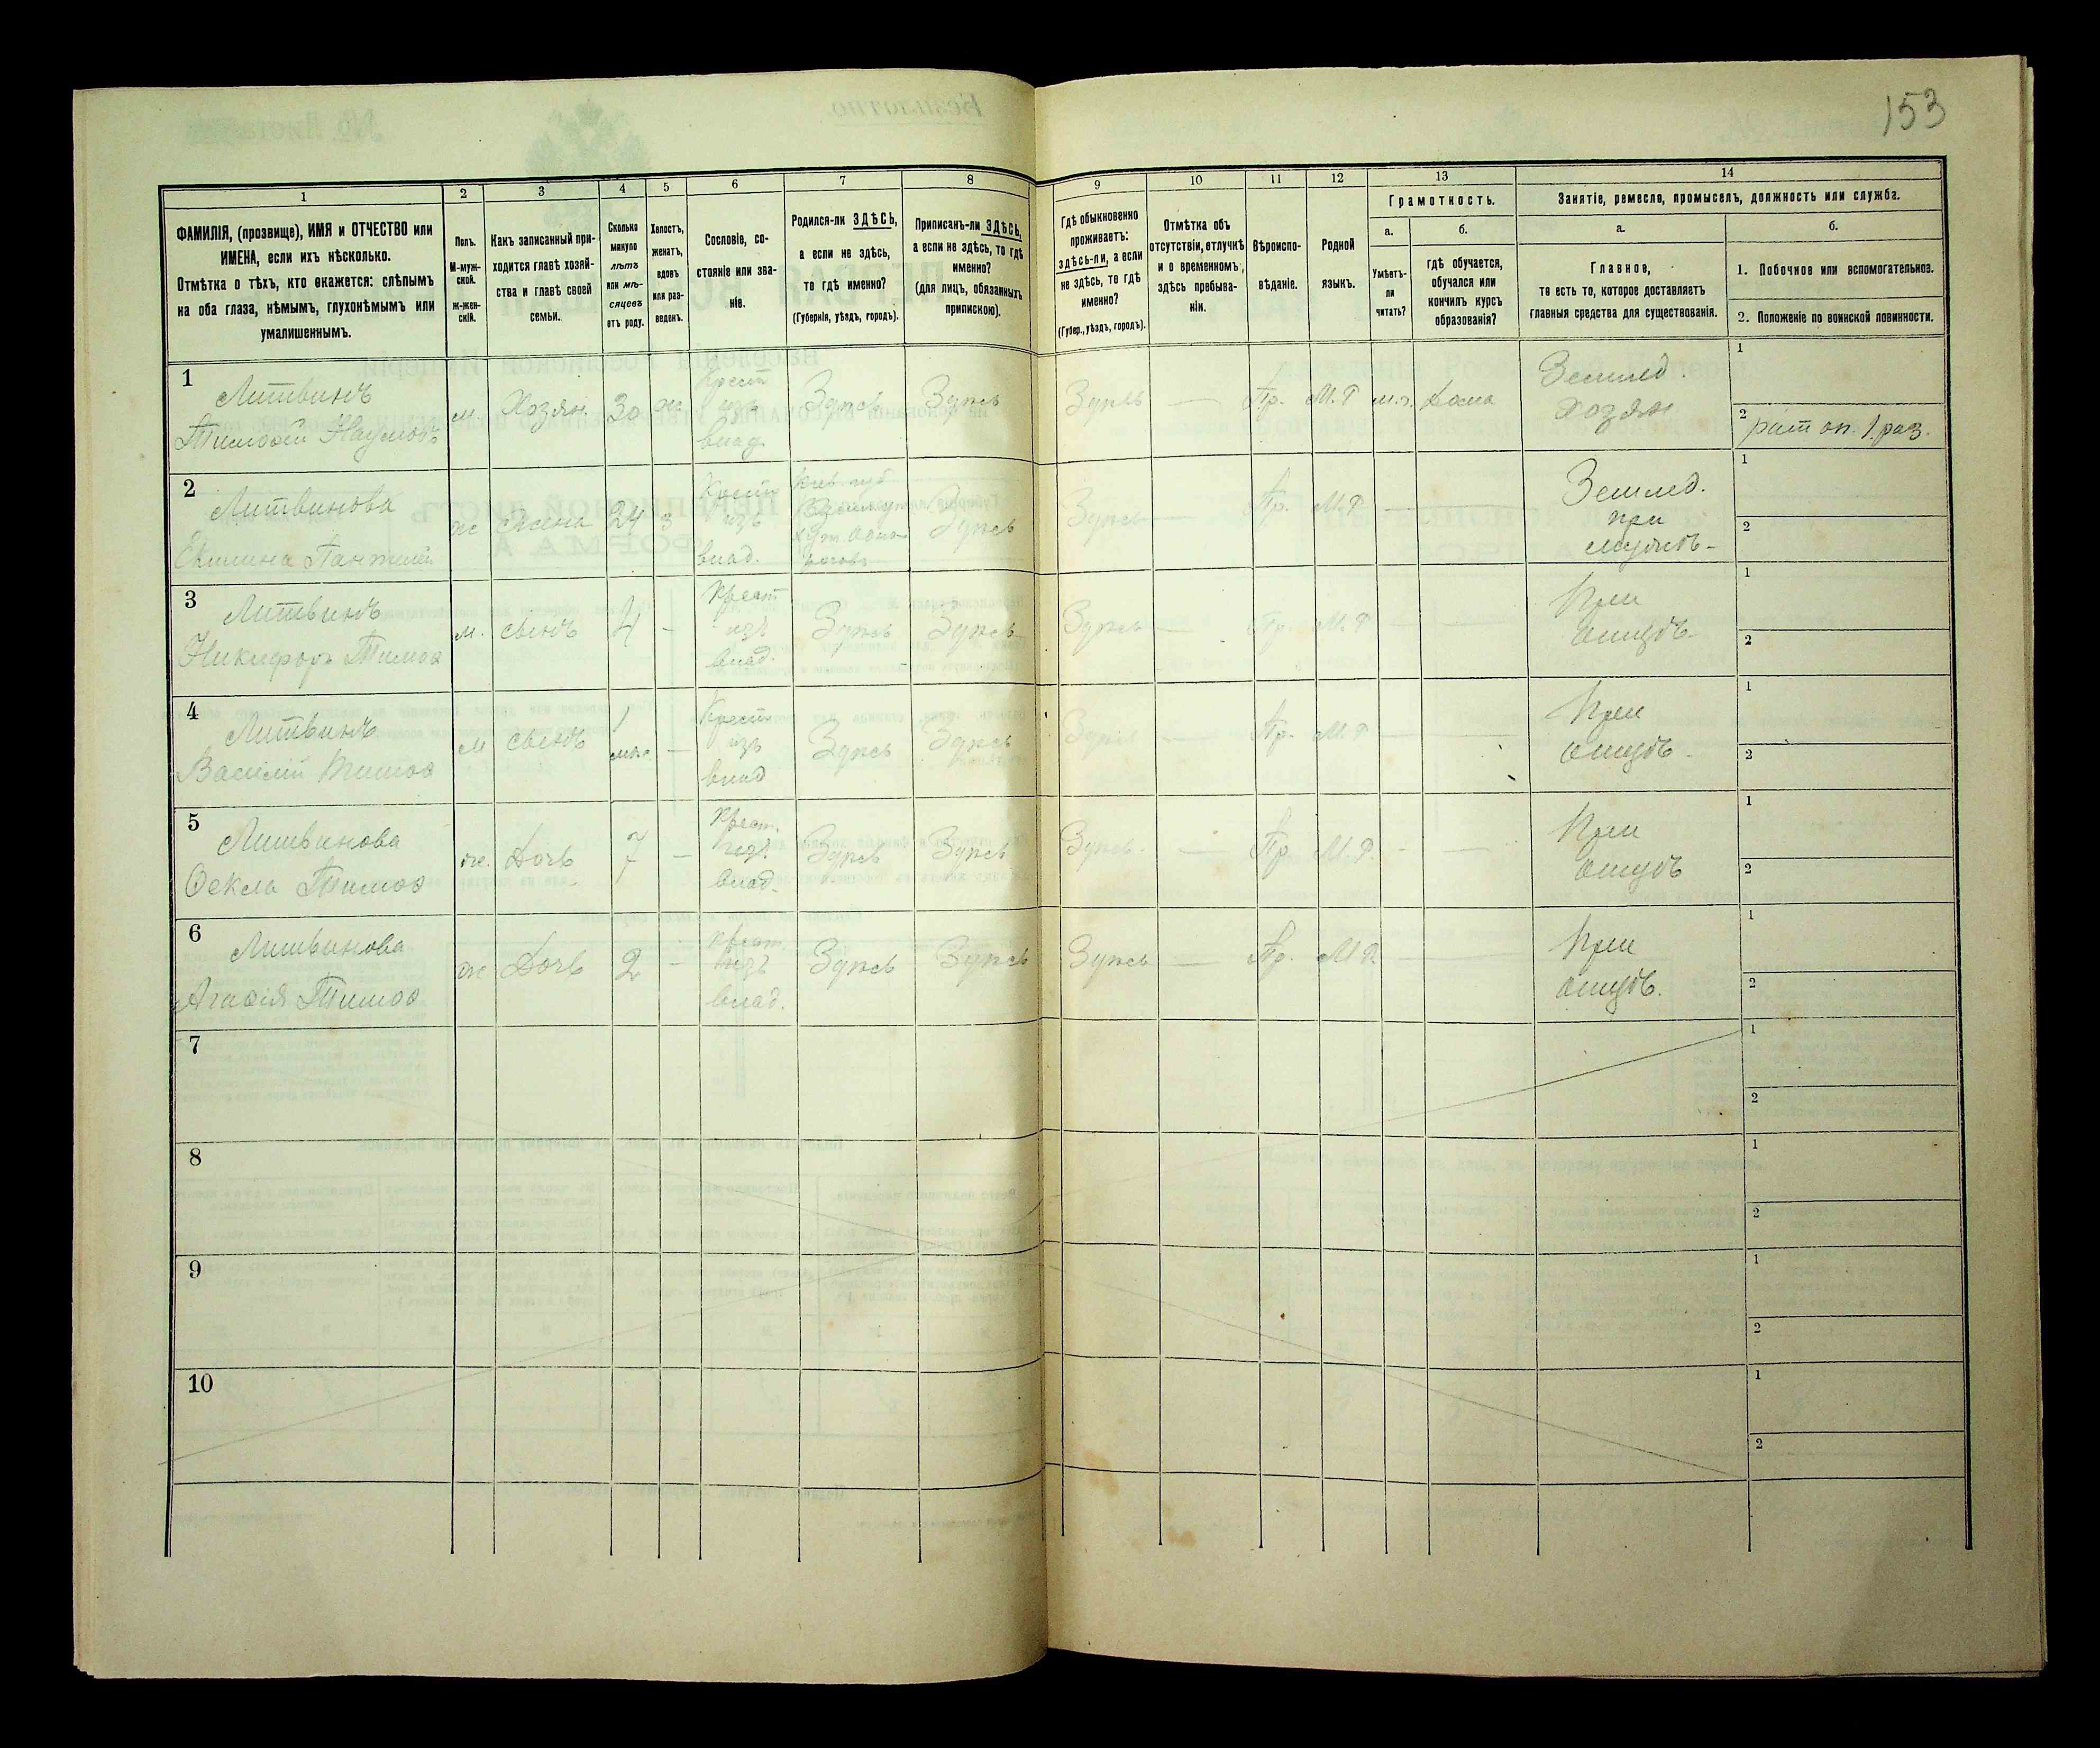 153
1
2
3
4
5
6
7
8
9
10
11
12
13
14
ФАМИЛІЯ, (прозвище), ИМЯ и ОТЧЕСТВО или
ИМЕНА, если ихъ нѣсколько.
Отмѣтка о тѣхъ, кто окажется: слѣпымъ
на оба глаза, нѣмымъ, глухонѣмымъ или
умалишеннымъ.
Полъ.
М-муж-
ской.
ж-жен-
скій.
Какъ записанный при-
ходится главѣ хозяй-
ства и главѣ своей
семьи.
Сколько
минуло
лѣтъ
или мѣ-
сяцевъ
отъ роду.
Холостъ,
женатъ,
вдовъ
или раз-
веденъ.
Сословіе, со-
стояніе или зва-
ніе.
Родился-ли ЗДѢСЬ,
а если не здѣсь,
то гдѣ именно?
(Губернія, уѣздъ, городъ).
Приписанъ-ли ЗДѢСЬ,
а если не здѣсь, то гдѣ
именно?
(для лицъ, обязанныхъ
припискою).
Гдѣ обыкновенно
проживаетъ:
здѣсь-ли, а если
не здѣсь, то гдѣ
именно?
(Губер., уѣздъ, городъ).
Отмѣтка объ
отсутствіи, отлучкѣ
и о временномъ
здѣсь пребыва-
ніи.
Вѣроиспо-
вѣданіе.
Родной
языкъ.
Грамотность.
а.
Умѣетъ-
ли
читать?
б.
гдѣ обучается,
обучался или
кончилъ курсъ
образованія?
Занятіе, ремесло, промыселъ, должность или служба.
а.
Главное,
то есть то, которое доставляетъ
главныя средства для существованія.
б.
1. Побочное или вспомогательное.
2. Положеніе по воинской повинности.
1
Литвинъ
Тимофей Наумовъ
м.
Хозян.
30
ж.
Крест
изъ
влад.
Здѣсь
Здѣсь
Здѣсь
—
Пр.
М.Р
Дома
Землед.
хозян
1
2
рат оп. 1. раз.
2
Литвинова
жс
жена
24
з
Крест
изъ
влад.
Здѣсь
Здѣсь
—
Пр.
М.Р
—
—
Землед.
при
мужѣ
1
2
3
Литвинъ
Никифоръ Тимоѳ
м.
сынъ
4
—
Крест
изъ
влад.
Здѣсь
Здѣсь
Здѣсь
—
Пр.
М.Р
—
—
При
отцѣ
1
2
4
Литвинъ
Василій Тимоѳ
м
сынъ
1
мѣс.
—
Крест
изъ
влад
Здѣсь
Здѣсь
Здѣсь
—
Пр.
М.Р
—
—
При
отцѣ
1
2
5
Литвинова
Ѳекла Тимоѳ
ж.
Дочь
7
—
Крест.
изъ
влад.
Здѣсь
Здѣсь
Здѣсь
—
Пр
М.Р.
-
—
При
отцѣ
1
2
6
Литвинова
Агафія Тимоѳ
ж
Дочь
2
—
Крест.
изъ
влад.
Здѣсь
Здѣсь
Здѣсь
—
Пр.
М Р.
—
При
отцѣ.
1
2
7
1
2
8
1
2
9
1
2
10
1
2